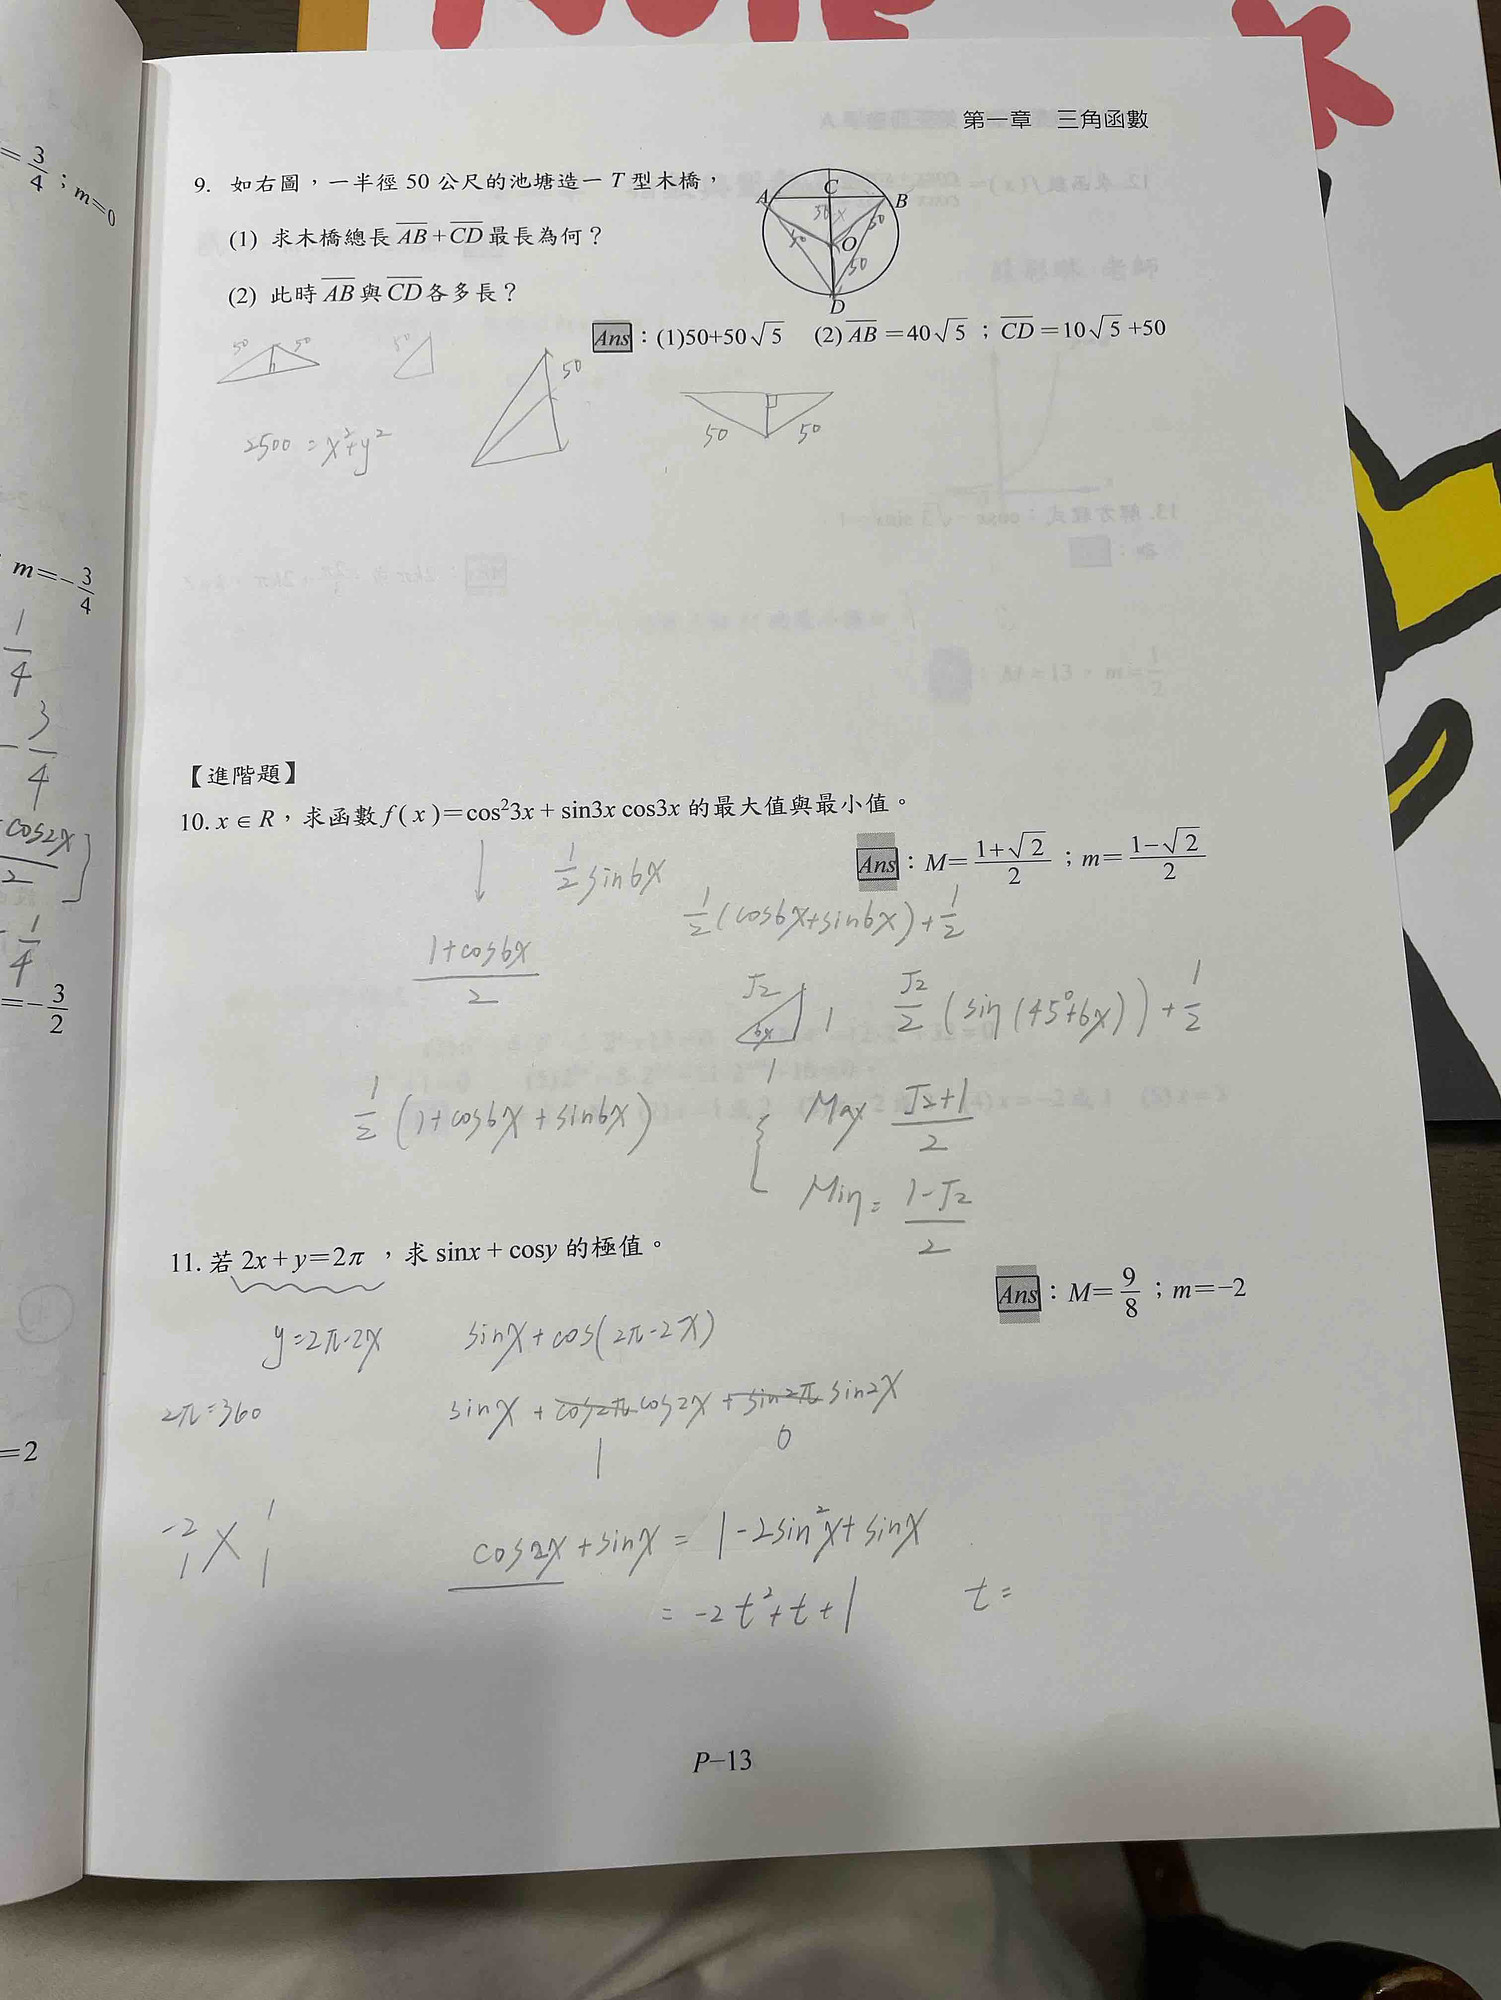 第一章 三角函數
9. 如右圖，一半徑 50 公尺的池塘造一 T 型木橋，
(1) 求木橋總長 AB+CD 最長為何？
(2) 此時 AB 與 CD 各多長？
A C B
50 x 50
O
50 50
D
Ans：(1)50+50√5 (2) AB=40√5；CD=10√5+50
50 50
50
50
50 50
2500 = x²+y²
【進階題】
10. x∈R，求函數 f(x)=cos²3x + sin3x cos3x 的最大值與最小值。
Ans：M=(1+√2)/2；m=(1-√2)/2
1/2 sin6x
1/2 (cos6x+sin6x)+1/2
(1+cos6x)/2
√2 6x 1 1
√2/2 (sin(45°+6x))+1/2
1/2 (1+cos6x+sin6x)
Max (√2+1)/2
Min= (1-√2)/2
11. 若 2x+y=2π，求 sinx + cosy 的極值。
Ans：M=9/8；m=-2
y=2π-2x sinx+cos(2π-2x)
2π=360 sinx + cos2π cos2x + sin2π sin2x
1 0
-2 1
1 1
cos2x + sinx = 1-2sin²x+sinx
= -2t²+t+1 t=
P-13
=3/4；m=0
m=-3/4
1/4
-3/4
cos2x
2
-1/4
=-3/2
=2